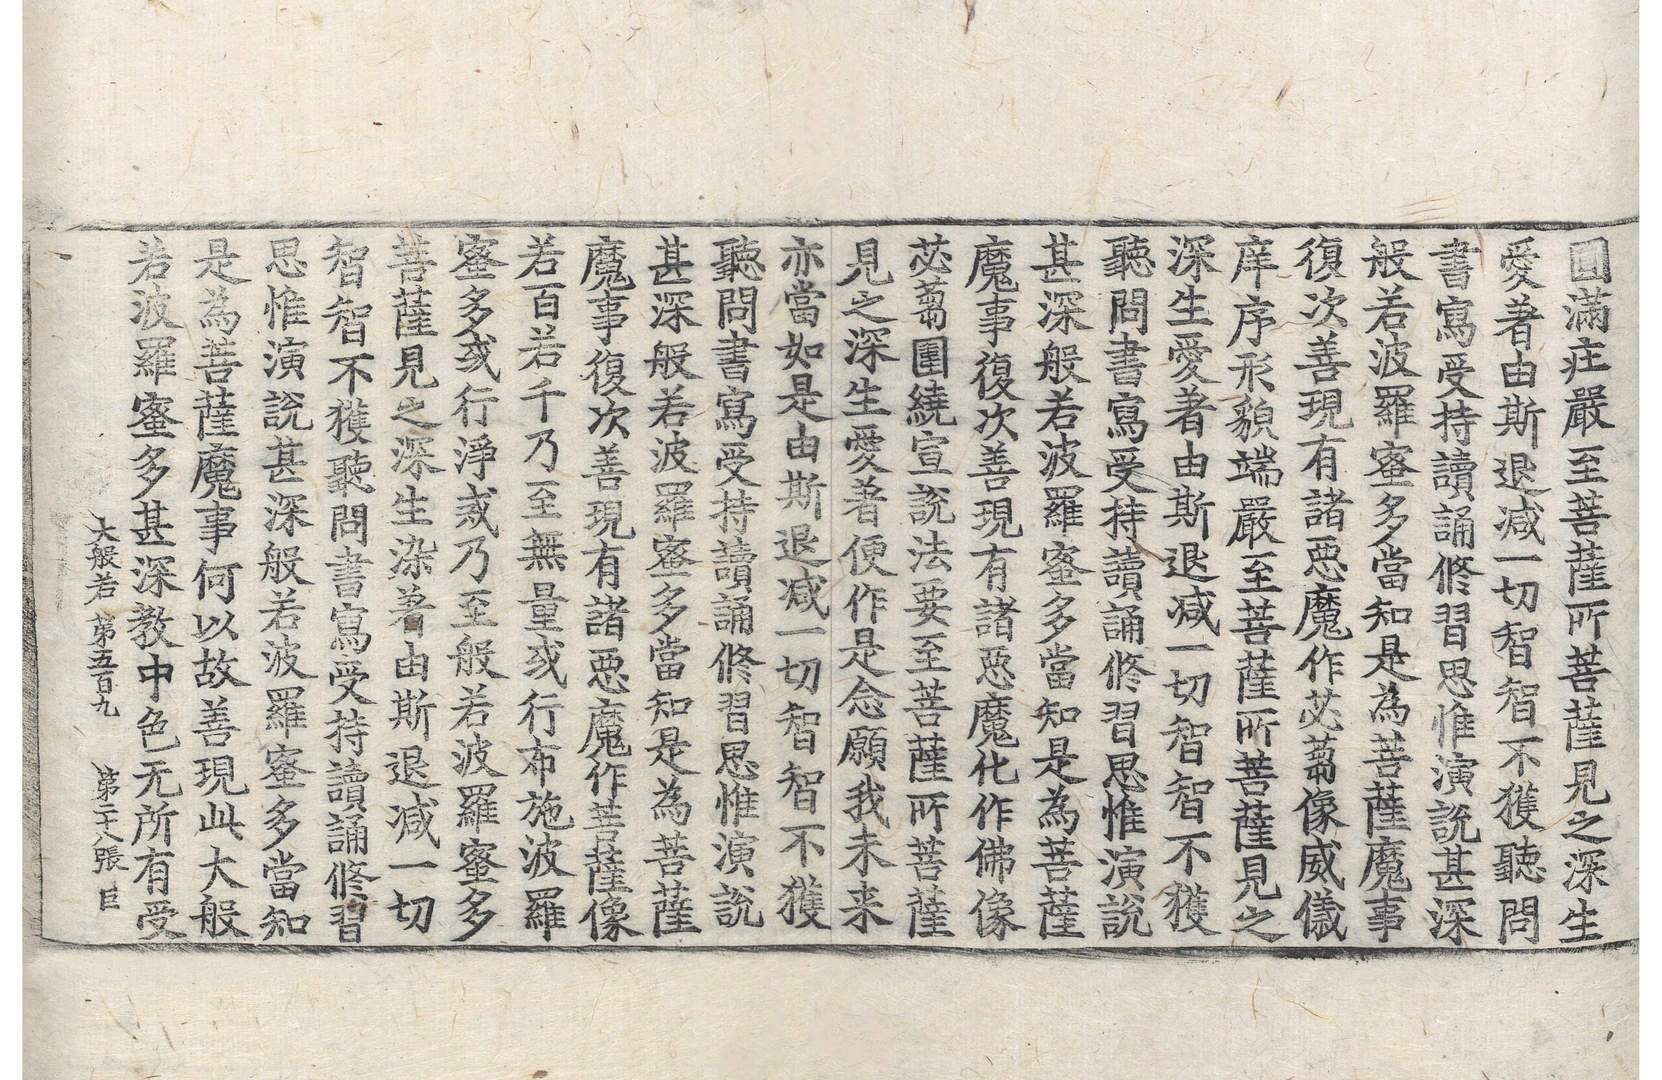 圓滿庄嚴至菩薩所菩薩見之深生
愛著由斯退減一切智智不獲聽問
書寫受持讀誦修習思惟演說甚深
般若波羅蜜多當知是為菩薩魔事
復次善現有諸惡魔作苾蒭像威儀
庠序形貌端嚴至菩薩所菩薩見之
深生愛著由斯退減一切智智不獲
聽問書寫受持讀誦修習思惟演說
甚深般若波羅蜜多當知是為菩薩
魔事復次善現有諸惡魔化作佛像
苾蒭圍繞宣說法要至菩薩所菩薩
見之深生愛著便作是念願我未来
亦當如是由斯退減一切智智不獲
聽問書寫受持讀誦修習思惟演說
甚深般若波羅蜜多當知是為菩薩
魔事復次善現有諸惡魔作菩薩像
若百若千乃至無量或行布施波羅
蜜多或行淨戒乃至般若波羅蜜多
菩薩見之深生染著由斯退減一切
智智不獲聽問書寫受持讀誦修習
思惟演說甚深般若波羅蜜多當知
是為菩薩魔事何以故善現此大般
若波羅蜜多甚深教中色无所有受
大般若 第五百九 第二十八張 巨